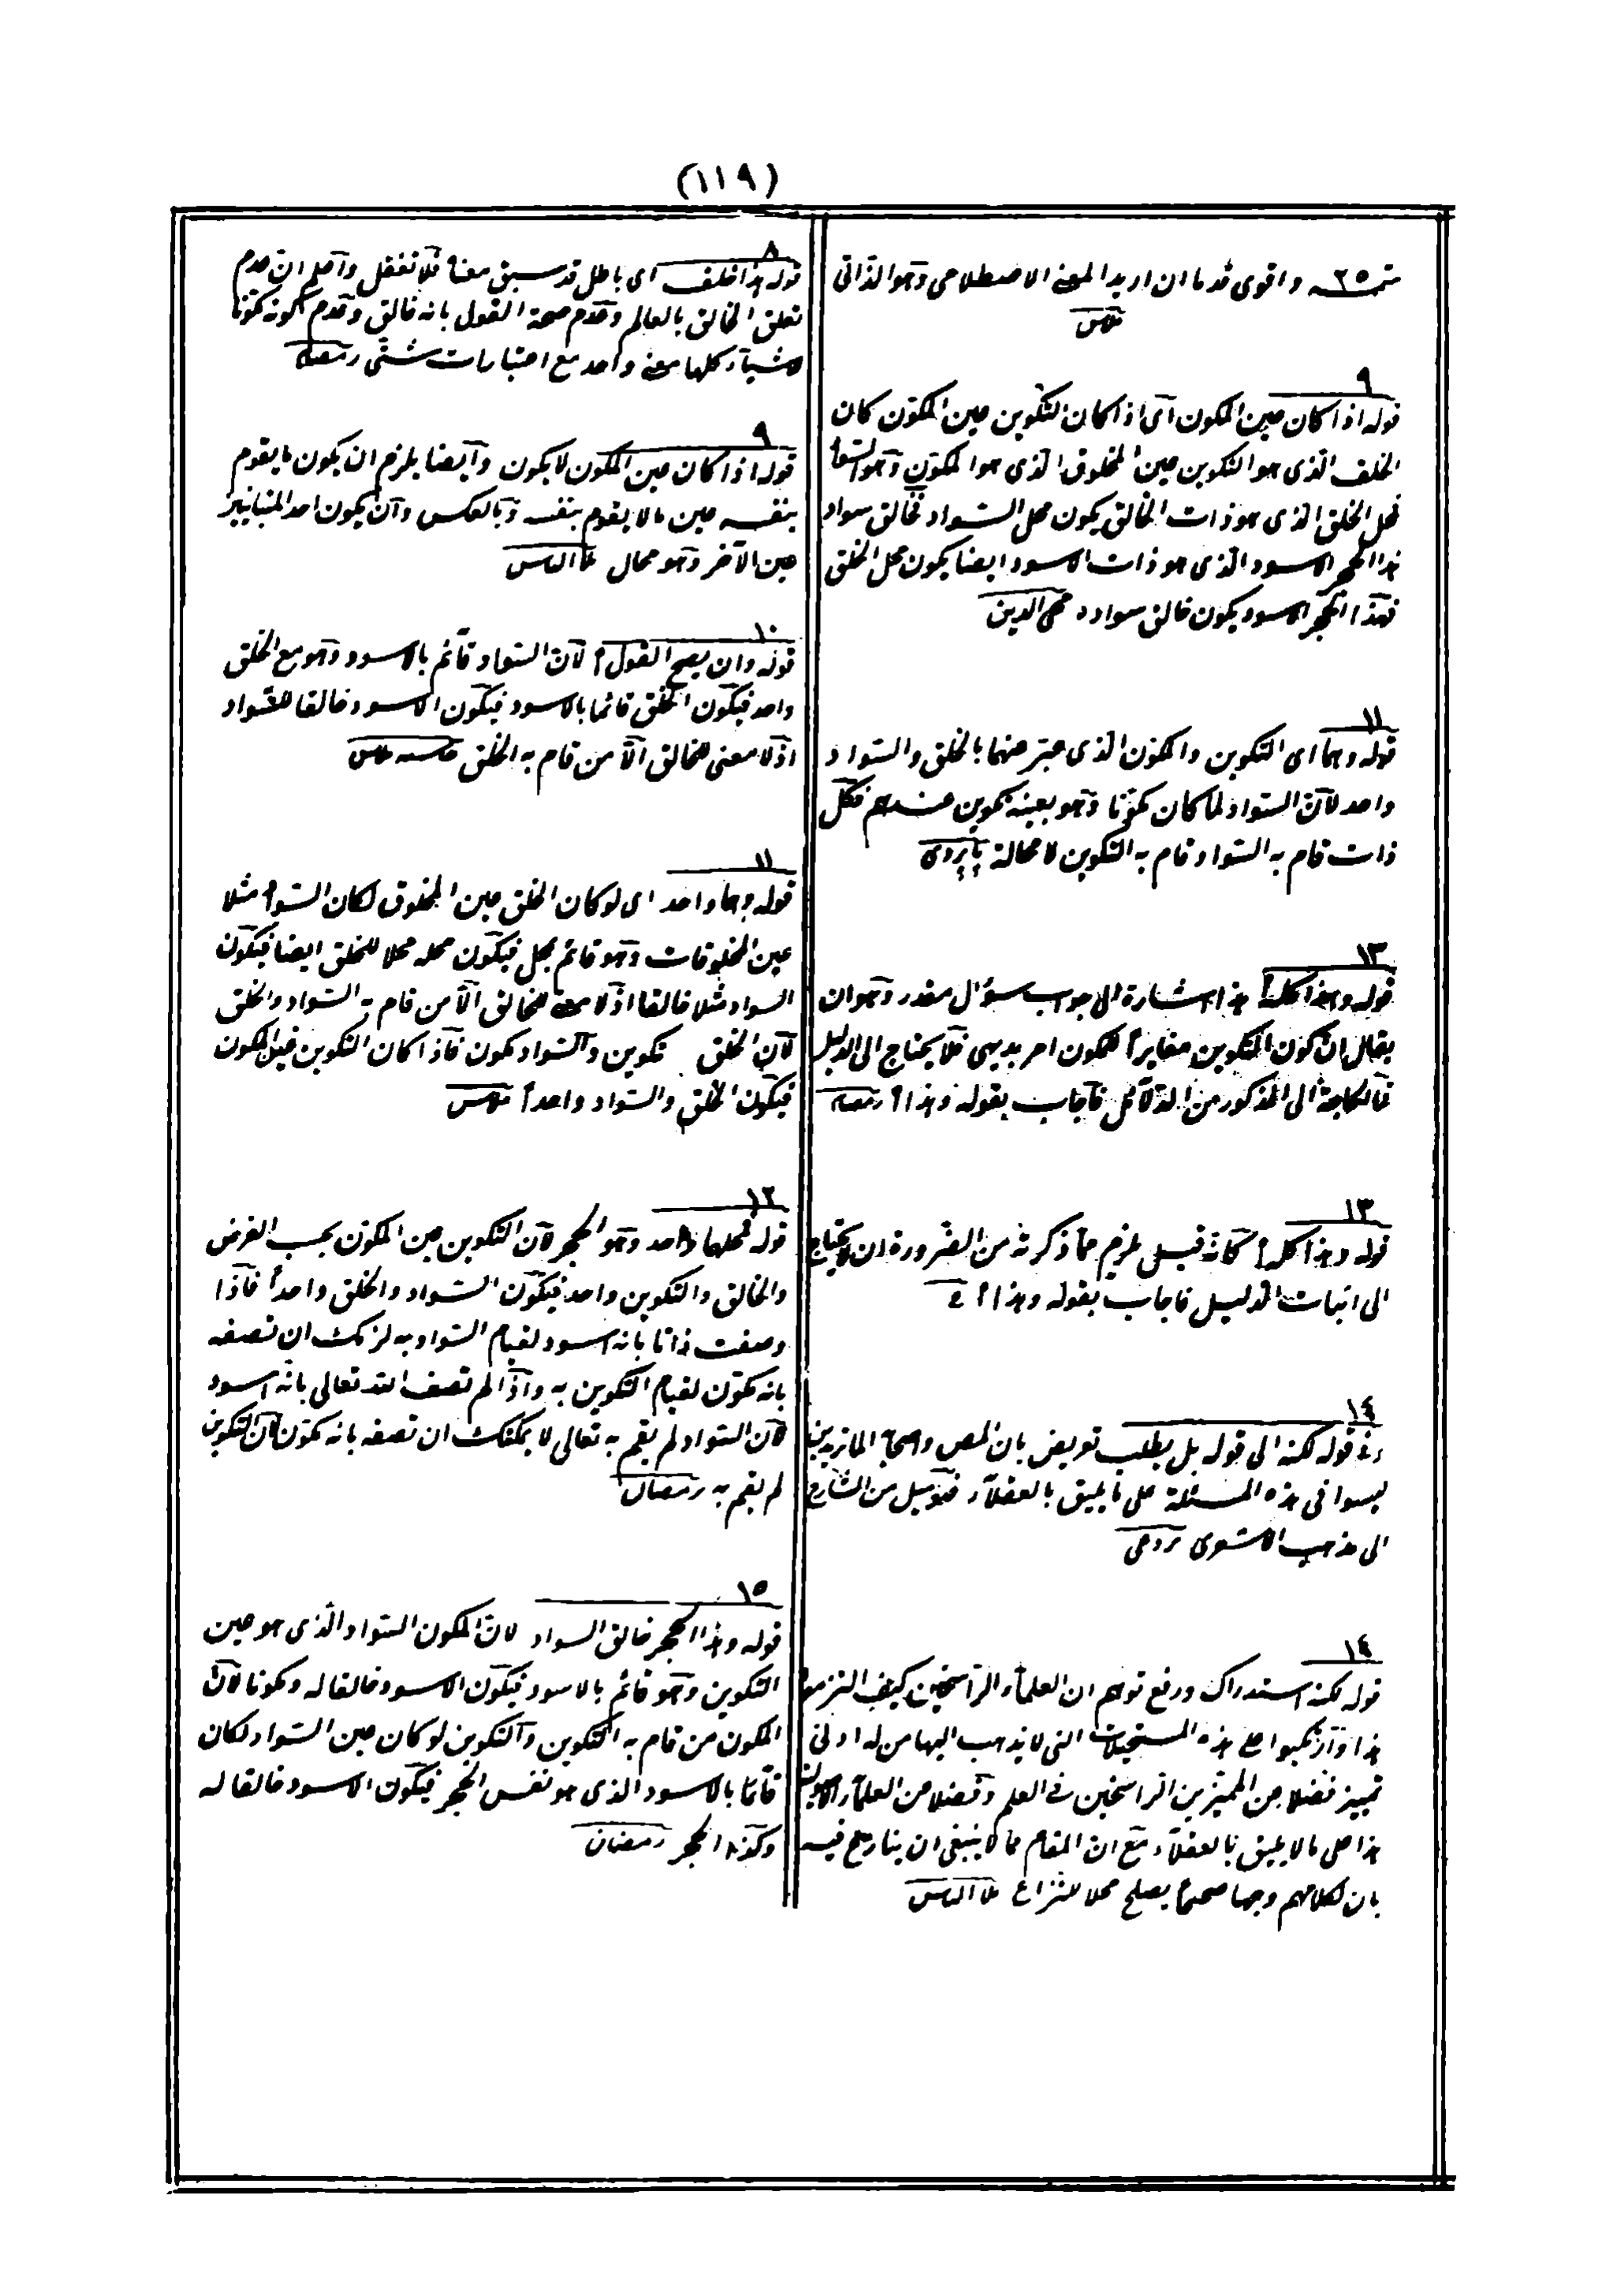 (١١٩)
تتمه ٢٥ واقوى قدما ان اريد المعنى الاصطلاحى وهو الذاتى
٩
قوله اذا كان عين المكون اى اذا كان التكوين عين المكون كان
الخلق الذى هو التكوين عين المخلوق الذى هو المكون وهو السواد
فمحل الخلق الذى هو ذات الخالق يكون محل السواد فخالق سواد
هذا الحجر الاسود الذى هو ذات الاسود ايضا يكون محل الخلق
فهذا الحجر الاسود يكون خالق سواده محى الدين
١١
قوله وهما اى التكوين والمكون الذى عبر عنهما بالخلق والسواد
واحد لان السواد لما كان مكونا وهو بعينه تكوين عندهم فكل
ذات قام به السواد قام به التكوين لا محالة
١٣
قوله وهذا كله ا هذا اشارة الى جواب سؤال مقدر وهو ان
يقال ان كون التكوين مغايرا للمكون امر بديهى فلا يحتاج الى الدليل
فما الحاجة الى المذكور من الدلائل فاجاب بقوله وهذا ا رمضان
١٣
قوله وهذا كله ا كانه قيل يلزم مما ذكرته من الضرورة ان لا يحتاج
الى اثبات الدليل فاجاب بقوله وهذا ا
١٤
قوله لكنه الى قوله بل يطلب تعريض بان المص واصحابه الماتريديين
ليسوا فى هذه المسئلة على ما يليق بالعقلاء فهو ميل من الشارح
الى مذهب الاشعرى
١٤
قوله لكنه استدراك ورفع توهم ان العلماء الراسخين كيف التزموا
هذا وارتكبوا مع هذه المستحيلات التى لا يذهب اليها من له ادنى
تمييز فضلا عن المميزين الراسخين فى العلم وفضلا من العلماء الاصولية
هذا على ما لا يليق بالعقلاء مع ان المقام مما لا ينبغى ان ينازع فيه
بان لكلامهم وجها صحيحا يصلح محلا للنزاع ملا الياس
٨
قوله هذا خلف اى باطل قد سبق معناه فلا تغفل واعلم ان عدم
تعلق الخالق بالعالم وعدم صحة القول بانه خالق وعدم كونه مكونا
للاشياء كلها معنى واحد مع اعتبارات شتى رمضان
٩
قوله اذا كان عين المكون لا يكون وايضا يلزم ان يكون ما يقوم
بنفسه عين ما لا يقوم بنفسه وبالعكس وان يكون احد المتباينين
عين الآخر وهو محال ملا الياس
١٠
قوله وان يصح القول ا لان السواد قائم بالاسود وهو مع الخلق
واحد فيكون الخلق قائما بالاسود فيكون الاسود خالقا للسواد
اذ لا معنى للخالق الا من قام به الخلق
١١
قوله وهما واحد اى لو كان الخلق عين المخلوق لكان السواد مثلا
عين المخلوقات وهو قائم بمحل فيكون محله محلا للخلق ايضا فيكون
السواد مثلا خالقا اذ لا معنى للخالق الا من قام به السواد والخلق
لان الخلق تكوين والسواد مكون فاذا كان التكوين عين المكون
فيكون الخلق والسواد واحدا
١٢
قوله فمحلهما واحد وهو الحجر لان التكوين عين المكون بحسب الفرض
والخالق والتكوين واحد فيكون السواد والخلق واحدا فاذا
وصفت ذاتا بانه اسود لقيام السواد به لزمك ان تصفه
بانه مكون لقيام التكوين به واذا لم تصف الله تعالى بانه اسود
لان السواد لم يقم به تعالى لا يمكنك ان تصفه بانه مكون لان التكوين
لم يقم به رمضان
١٥
قوله وهذا الحجر خالق السواد لان المكون السواد الذى هو عين
التكوين وهو قائم بالاسود فيكون الاسود خالقا له ومكونا لان
المكون من قام به التكوين والتكوين لو كان عين السواد لكان
قائما بالاسود الذى هو نفس الحجر فيكون الاسود خالقا له
وكذا الحجر رمضان